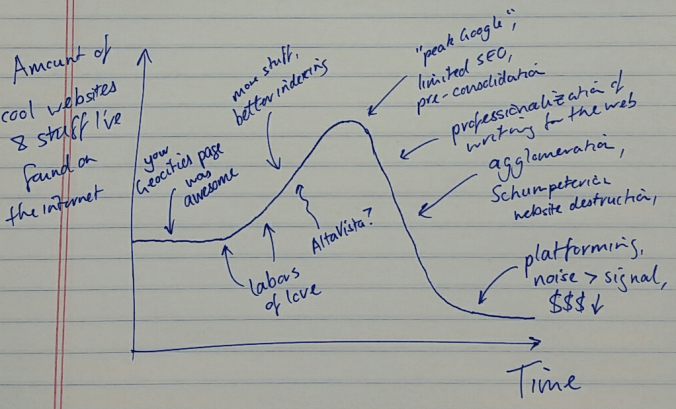 Amount of
cool websites
& stuff I've
found on
the internet
your
Geocities page
was
awesome
more stuff,
better indexing
Labors
of love
AltaVista?
"peak Google",
limited SEO,
pre-consolidation
professionalization of
writing for the web
agglomeration,
Schumpeterian
website destruction,
platforming,
noise > signal,
$$$ ↓
Time